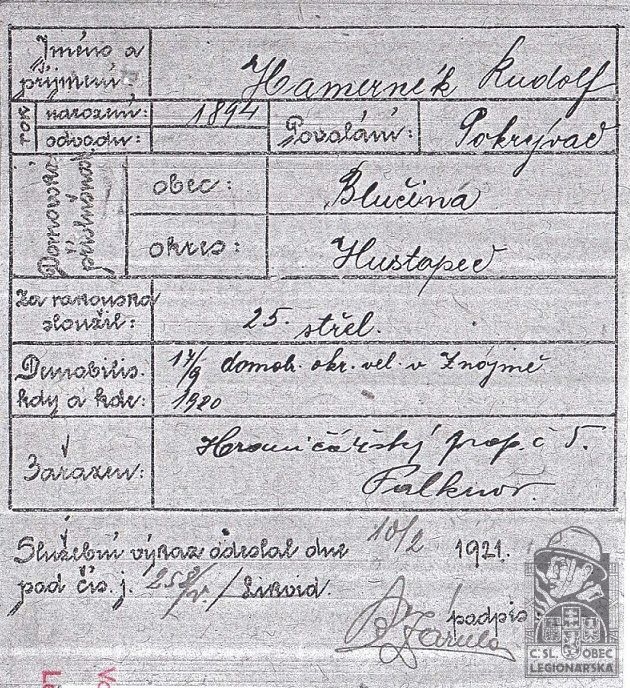 Jméno a
příjmení: Hamerněk Rudolf
rok narození: 1894 Povolání: Pokrývač
odvodu:
Domovská příslušnost
obec: Blučina
okres: Hustopeč
Za rakouska
sloužil: 25. střel.
Demobilis. 17/9 domob. okr. vel. v Znojmě
kdy a kde: 1920
Zařazen: Hraničářský prap. č 5.
Falknov.
Služební výkaz odeslal dne 10/2 1921.
pod čís. j. 258/V. / Likvid.
podpis
ČSL. OBEC
LEGIONÁŘSKÁ